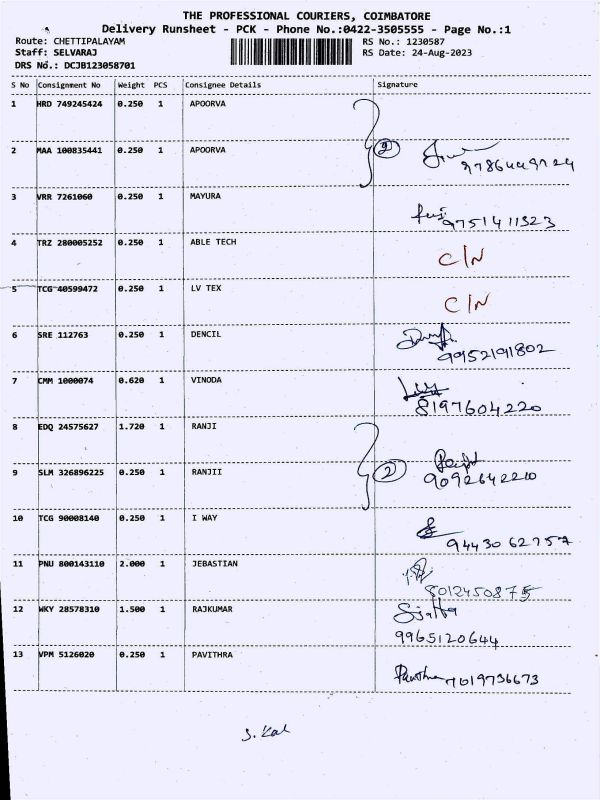 THE PROFESSIONAL COURIERS, COIMBATORE
Delivery Runsheet - PCK - Phone No.:0422-3505555 - Page No.:1
Route: CHETTIPALAYAM RS No.: 1230587
Staff: SELVARAJ RS Date: 24-Aug-2023
DRS No.: DCJB123058701
S No Consignment No Weight PCS Consignee Details Signature
1 HRD 749245424 0.250 1 APOORVA
2 MAA 100835441 0.250 1 APOORVA 2
9786449724
3 VRR 7261060 0.250 1 MAYURA
9751411323
4 TRZ 280005252 0.250 1 ABLE TECH C/N
5 TCG 40599472 0.250 1 LV TEX C/N
6 SRE 112763 0.250 1 DENCIL
9952191802
7 CMM 1000074 0.620 1 VINODA
8197604220
8 EDQ 24575627 1.720 1 RANJI
9 SLM 326896225 0.250 1 RANJII 2 9092642210
10 TCG 90008140 0.250 1 I WAY
9443062757
11 PNU 800143110 2.000 1 JEBASTIAN
8012450875
12 WKY 28578310 1.500 1 RAJKUMAR
9965120644
13 VPM 5126020 0.250 1 PAVITHRA
Pavithra 7019736673
S. Kal